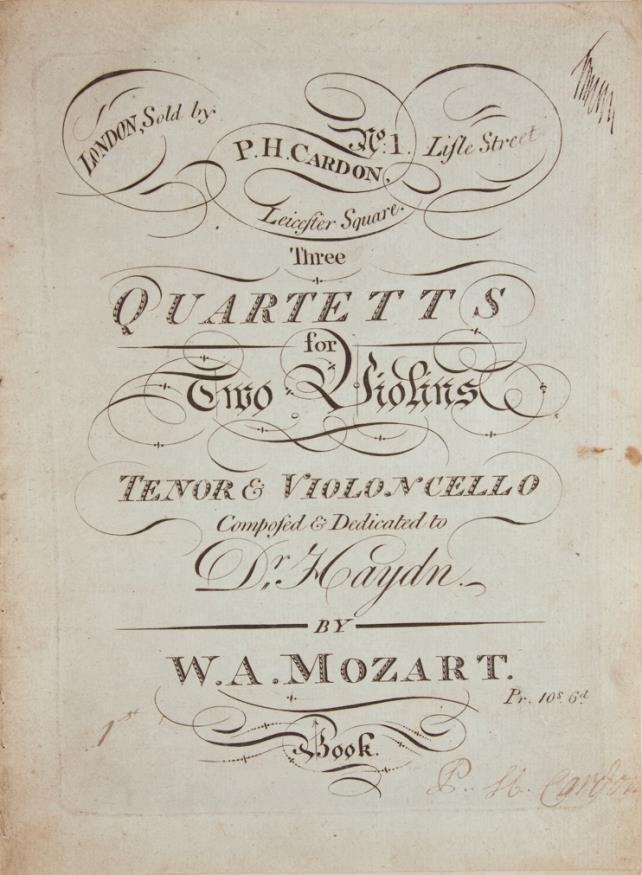 LONDON, Sold by
P. H. CARDON, No. 1. Lisle Street
Leicester Square.
Three
QUARTETTS
for
Two Violins
TENOR & VIOLONCELLO
Composed & Dedicated to
Dr. Haydn.
BY
W. A. MOZART.
Pr. 10s. 6d
1st
Book.
P. H. Cardon